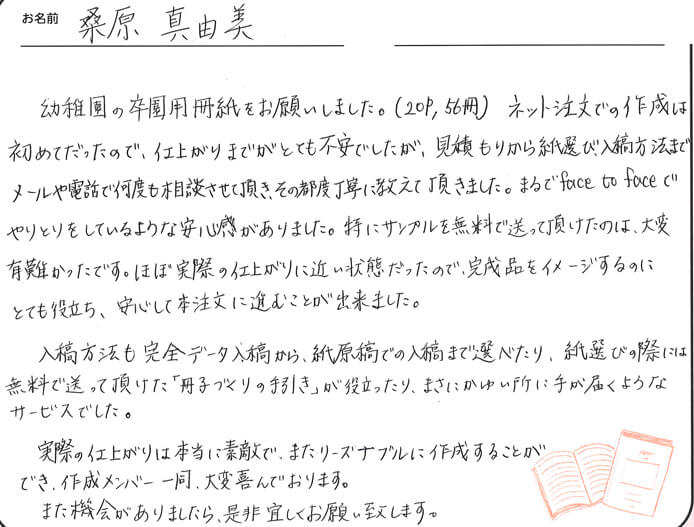 お名前 桑原 真由美
幼稚園の卒園用冊紙をお願いしました。(20P, 56冊) ネット注文での作成は
初めてだったので、仕上がりまでがとても不安でしたが、見積もりから紙選び、入稿方法まで
メールや電話で何度も相談させて頂き、その都度丁寧に教えて頂きました。まるでface to faceで
やりとりをしているような安心感がありました。特にサンプルを無料で送って頂けたのは、大変
有難かったです。ほぼ実際の仕上がりに近い状態だったので、完成品をイメージするのに
とても役立ち、安心して本注文に進むことが出来ました。
入稿方法も完全データ入稿から、紙原稿での入稿まで選べたり、紙選びの際には
無料で送って頂けた「冊子づくりの手引き」が役立ったり、まさにかゆい所に手が届くような
サービスでした。
実際の仕上がりは本当に素敵で、またリーズナブルに作成することが
でき、作成メンバー一同、大変喜んでおります。
また機会がありましたら、是非宜しくお願い致します。